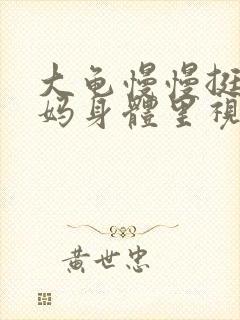 大龟慢慢挺
妈身體里視
黄世忠